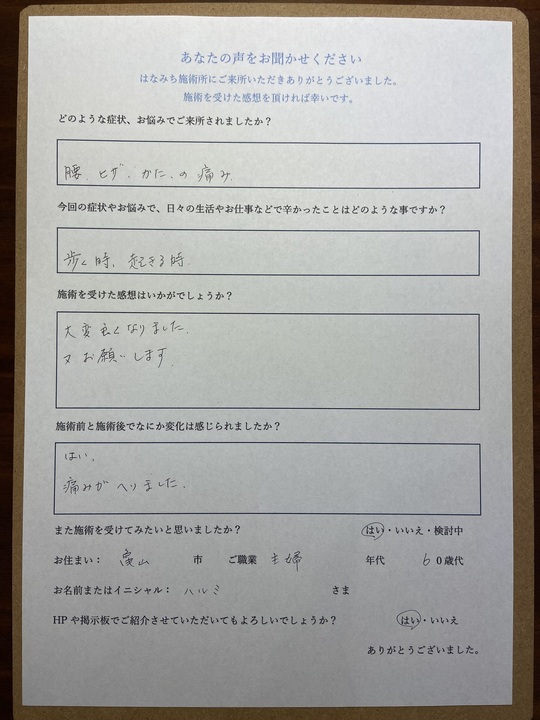 あなたの声をお聞かせください
はなみち施術所にご来所いただきありがとうございました。
施術を受けた感想を頂ければ幸いです。
どのような症状、お悩みでご来所されましたか？
腰、ヒザ、かた、の痛み
今回の症状やお悩みで、日々の生活やお仕事などで辛かったことはどのような事ですか？
歩く時、起きる時
施術を受けた感想はいかがでしょうか？
大変良くなりました。
又お願いします
施術前と施術後でなにか変化は感じられましたか？
はい、
痛みがへりました。
また施術を受けてみたいと思いましたか？ はい・いいえ・検討中
お住まい： 山 市 ご職業 主婦 年代 60歳代
お名前またはイニシャル： ハルミ さま
HPや掲示板でご紹介させていただいてもよろしいでしょうか？ はい・いいえ
ありがとうございました。